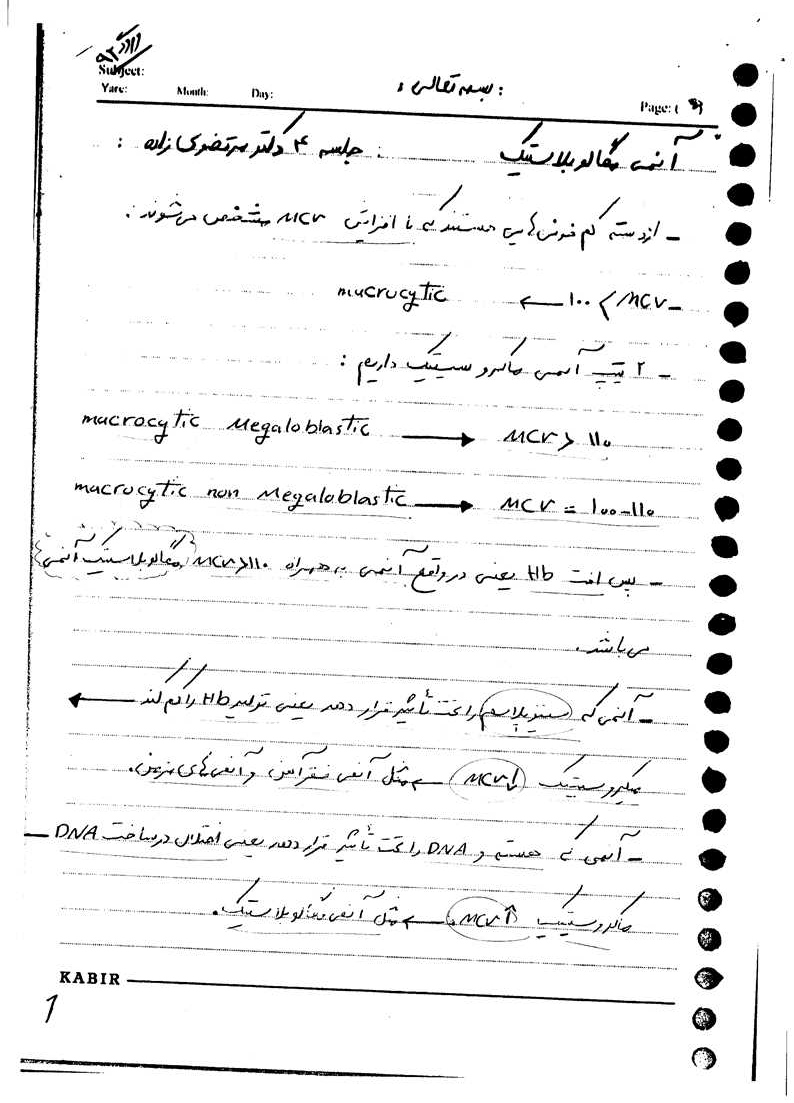 Subject:
Yare: Month: Day:
بسمه تعالی :
Page: (
آنمی مگالوبلاستیک : جلسه ۴ دکتر مرتضوی زاده :
- از دسته کم خونی هایی هستند که با افزایش MCV مشخص می شوند.
- MCV > ۱۰۰ ← mucrucytic
- ۲ تیپ آنمی ماکروسیتیک داریم :
macrocytic Megaloblastic → MCV > ۱۱۰
macrocytic non Megaloblastic → MCV = ۱۰۰-۱۱۰
- پس افت Hb یعنی در واقع آنمی به همراه MCV>۱۱۰ (مگالوبلاستیک آنمی)
می باشد.
- آنمی که سیتوپلاسم را تحت تأثیر قرار دهد یعنی تولید Hb را کم کند ←
میکروسیتیک MCV↓ ← مثل آنمی فقر آهن و آنمی های مزمن.
- آنمی که هسته و DNA را تحت تأثیر قرار دهد یعنی اختلال در ساخت DNA —
ماکروسیتیک MCV↑ ← مثل آنمی مگالوبلاستیک.
KABIR
1